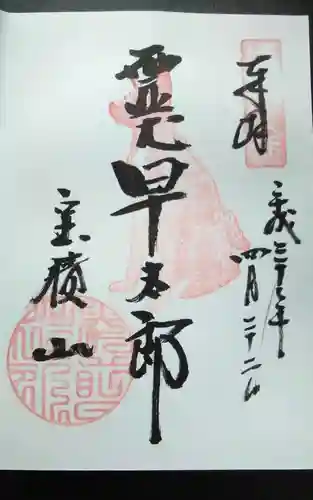 奉拝
平成年
四月二十二日
霊犬早太郎
宝積山